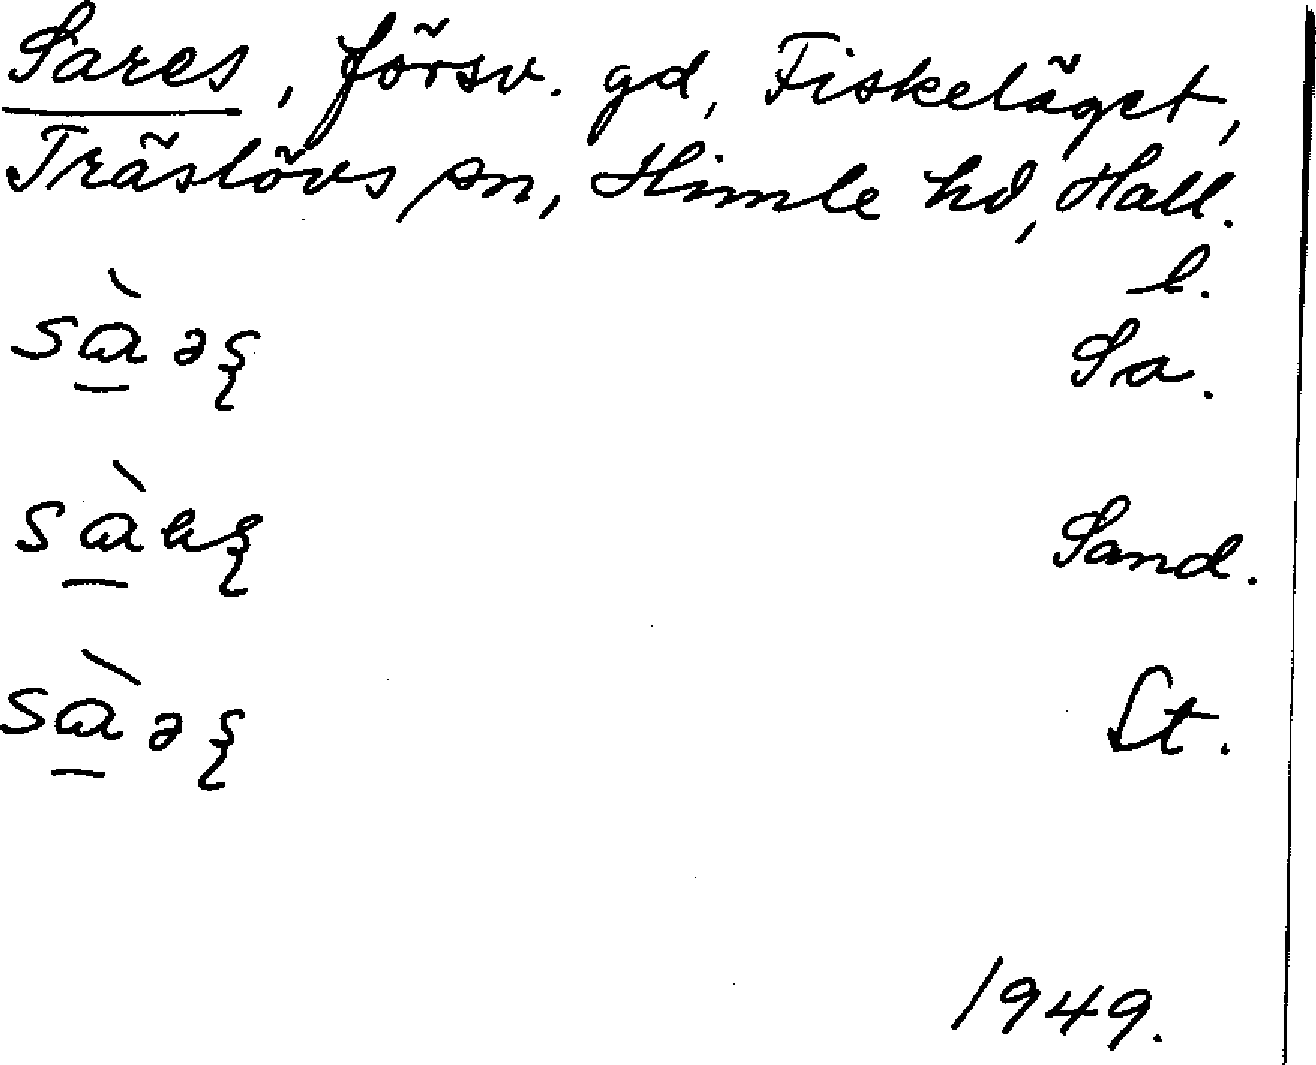 Sares, försv. gd, Fiskeläget,
Träslövs sn, Himle hd, Hall. l.
Sa.
Sand.
St.
1949.